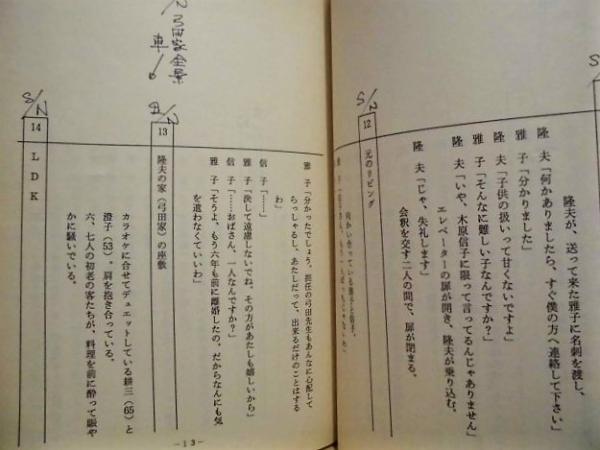 隆夫が、送って来た雅子に名刺を渡し、
隆　夫「何かありましたら、すぐ僕の方へ連絡して下さい」
雅　子「分かりました」
隆　夫「子供の扱いって甘くないですよ」
雅　子「そんなに難しい子なんですか？」
隆　夫「いや、木原信子に限って言ってるんじゃありません」
エレベーターの扉が開き、隆夫が乗り込む。
隆　夫「じゃ、失礼します」
会釈を交す二人の間で、扉が閉まる。
S/N
12　元のリビング
向かい合っている雅子と信子。
雅　子「分かったでしょう。担任の弓田先生もあんなに心配して
らっしゃるし、あたしだって、出来るだけのことはする
わ」
信　子「……」
雅　子「決して遠慮しないでね。その方があたしも嬉しいから」
信　子「……おばさん、一人なんですか？」
雅　子「そうよ、もう六年も前に離婚したの。だからなんにも気
を遣わなくていいわ」
弓田家全景
車！
13　隆夫の家（弓田家）の座敷
カラオケに合せてデュエットしている耕三（65）と
澄子（53）。肩を抱き合っている。
六、七人の初老の客たちが、料理を前に酔って賑や
かに騒いでいる。
S/N
14　ＬＤＫ
－13－